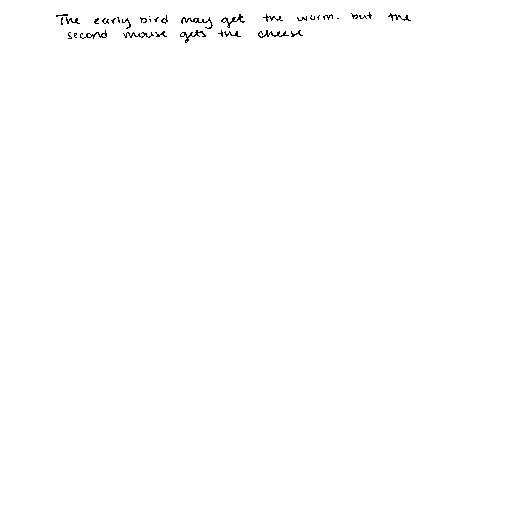 The early bird may get the worm. but the
second mouse gets the cheese